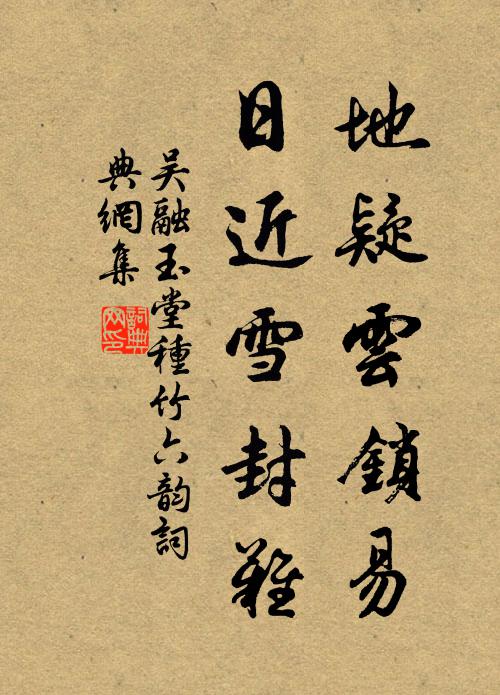 地疑雲鎖易
日近雪封難
吴融玉堂種竹六韵詞
典網集
詞典
网印